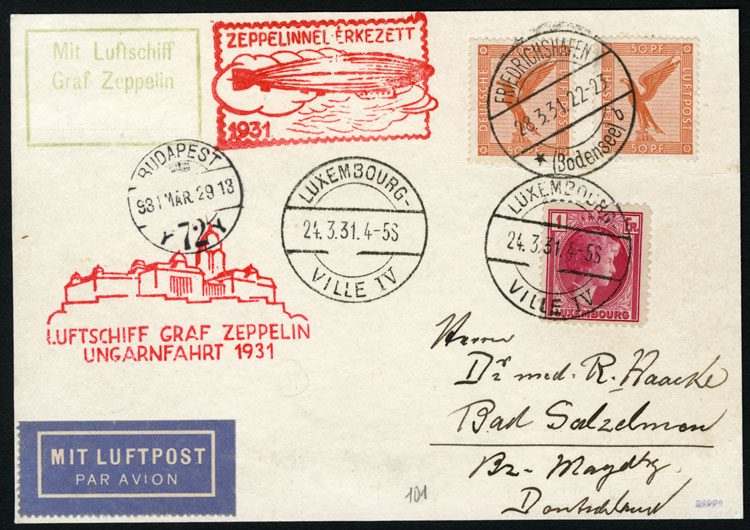 Mit Luftschiff
Graf Zeppelin
ZEPPELINNEL ÉRKEZETT
1931
DEUTSCHE
50 PF.
LUFTPOST
50 PF.
50 PF.
LUFTPOST
50 PF.
FRIEDRICHSHAFEN
28.3.31.22-23
(Bodensee) b
BUDAPEST
931 MAR. 29 13
72
LUXEMBOURG-
24.3.31.4-5S
VILLE IV
LUXEMBOURG-
24.3.31.4-5S
VILLE IV
1 FR.
LUXEMBOURG
LUFTSCHIFF GRAF ZEPPELIN
UNGARNFAHRT 1931
Herrn
Dr med. R. Haacke
Bad Salzelmen
Bz- Magdbg.
Deutschland
MIT LUFTPOST
PAR AVION
101